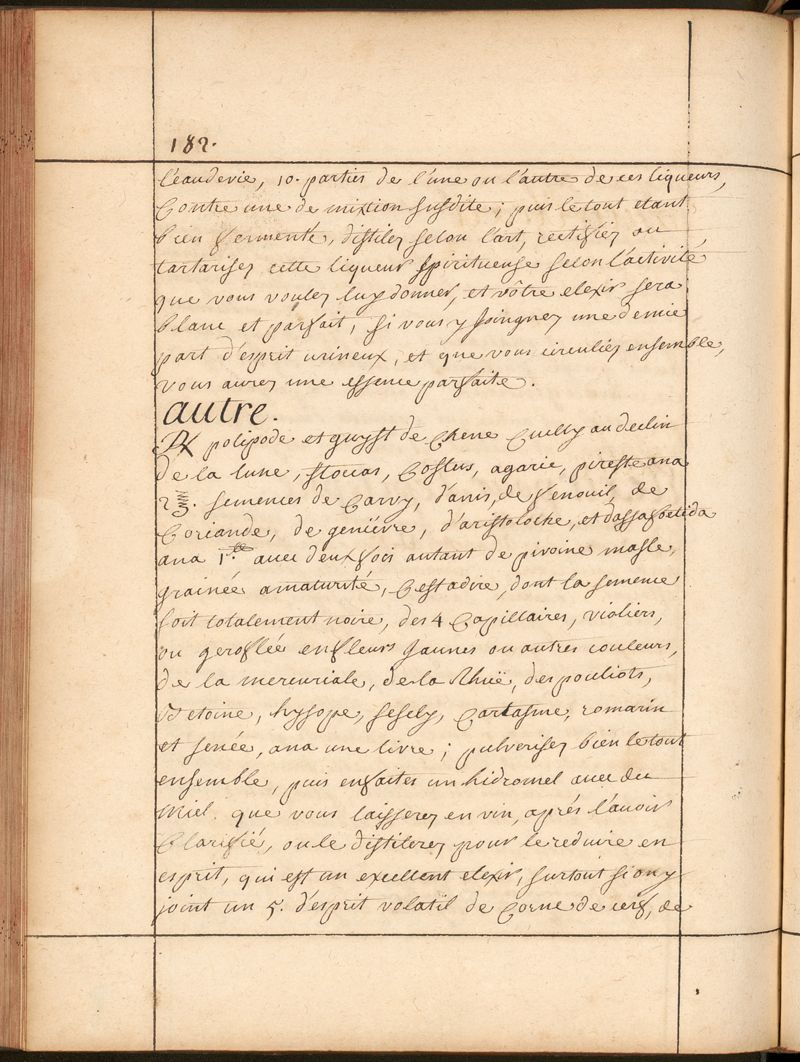 182.
l'eaudevie, 10. parties de l'une ou l'autre de ces liqueurs,
Contre une de mixtion susdite; puis le tout etant
bien fermenté, distilez selon l'art, rectifiez ou
tartarisez cette liqueur spirituense selon l'activité
que vous voulez luy donner, et vôtre elexir sera
blanc et parfait, si vous y joingnez une demie
part d'esprit urineux, et que vous circuliez ensemble,
vous aurez une essence parfaite.
autre.
℞ polipode et guyst de Chene Cuelly au declin
de la lune, stoecas, Costus, agaric, ana
2 ℥. semences de Carvy, d'anis, de fenouil, de
Coriande, de geniévre, d'aristoloche, et d'assafoetida
ana 1. avec deux fois autant de pivoine masle,
grainée a maturité, C'est adire, dont la semence
soit totalement noire, des 4 Capillaires, violiers,
ou geroflée en fleurs Jaunes ou autres couleurs,
de la mercuriale, de la Rhuë, des pouliots,
Betoine, hysope, sesely, Cartasme, romarin
et senée, ana une livre; pulverisez bien le tout
ensemble, puis en faites un hidromel avec du
Miel. que vous laisserez en vin, aprés l'avoir
Clarifié, ou le distilerez pour le reduire en
esprit, qui est un excellent elexir, surtout si on y
joint un 5. d'esprit volatil de Corne de cerf, de